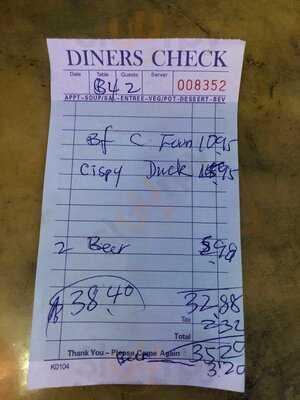 DINERS CHECK
Date Table Guests Server
B4 2 008352
APPT-SOUP/SAL-ENTREE-VEG/POT-DESSERT-BEV
Bf C Foun 1095
Cispy Duck 1595
2 Beer 598
$38.40 32.88
Tax 232
Total
Thank You – Please Come Again 3520
K0104 Beer 320